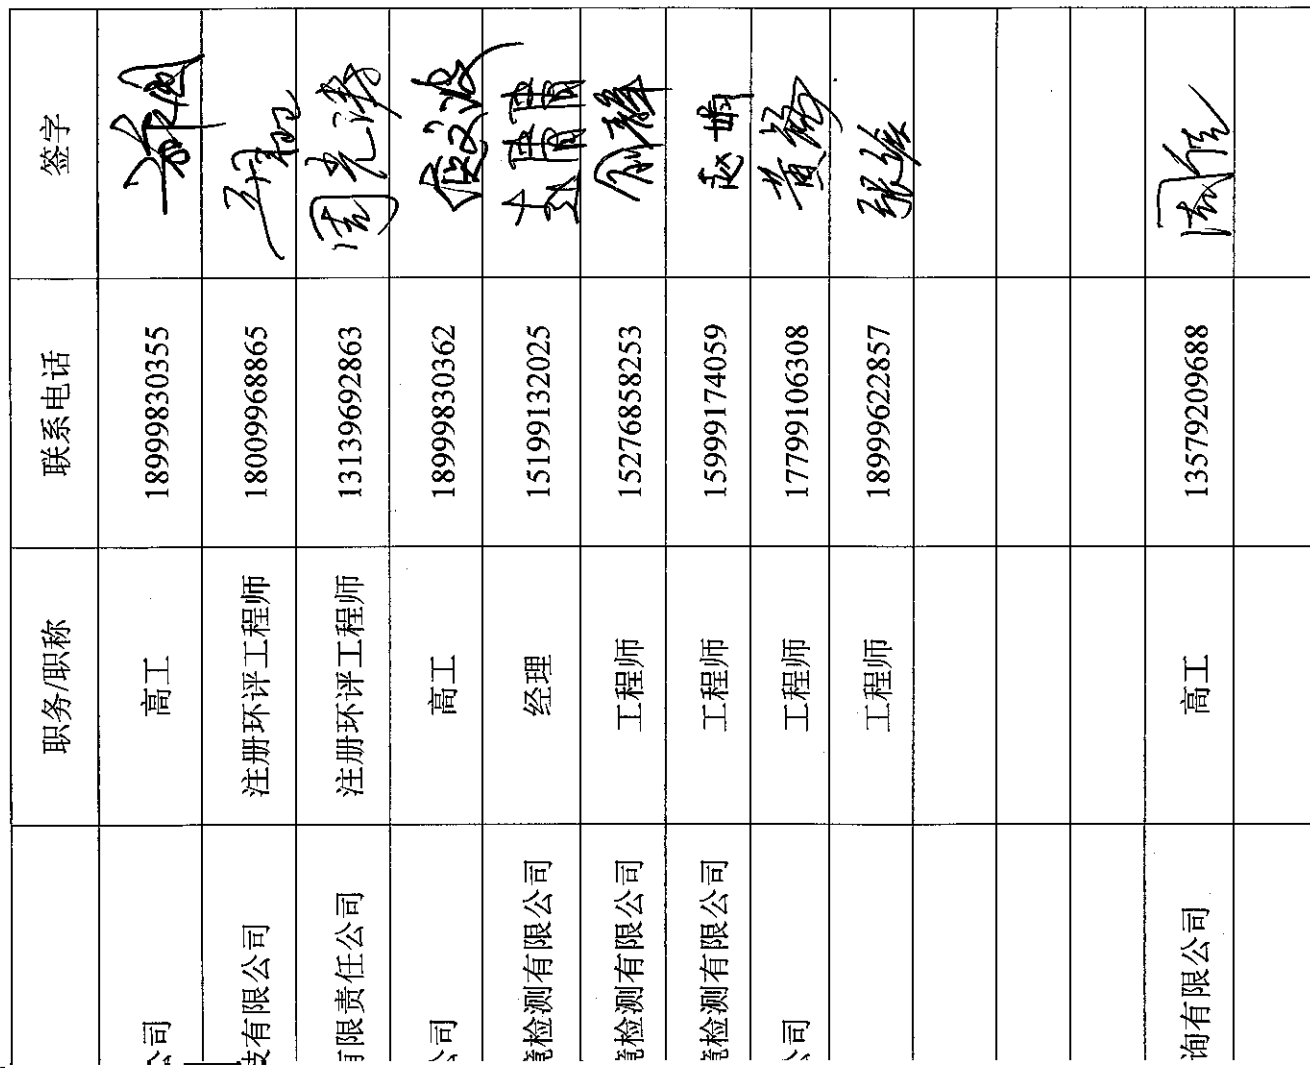 职务/职称 联系电话 签字
公司 高工 18999830355
技有限公司 注册环评工程师 18009968865
有限责任公司 注册环评工程师 13139692863 周
公司 高工 18999830362
境检测有限公司 经理 15199132025
境检测有限公司 工程师 15276858253
境检测有限公司 工程师 15999174059 赵娟
公司 工程师 17799106308 黄
工程师 18999622857 张强
询有限公司 高工 13579209688